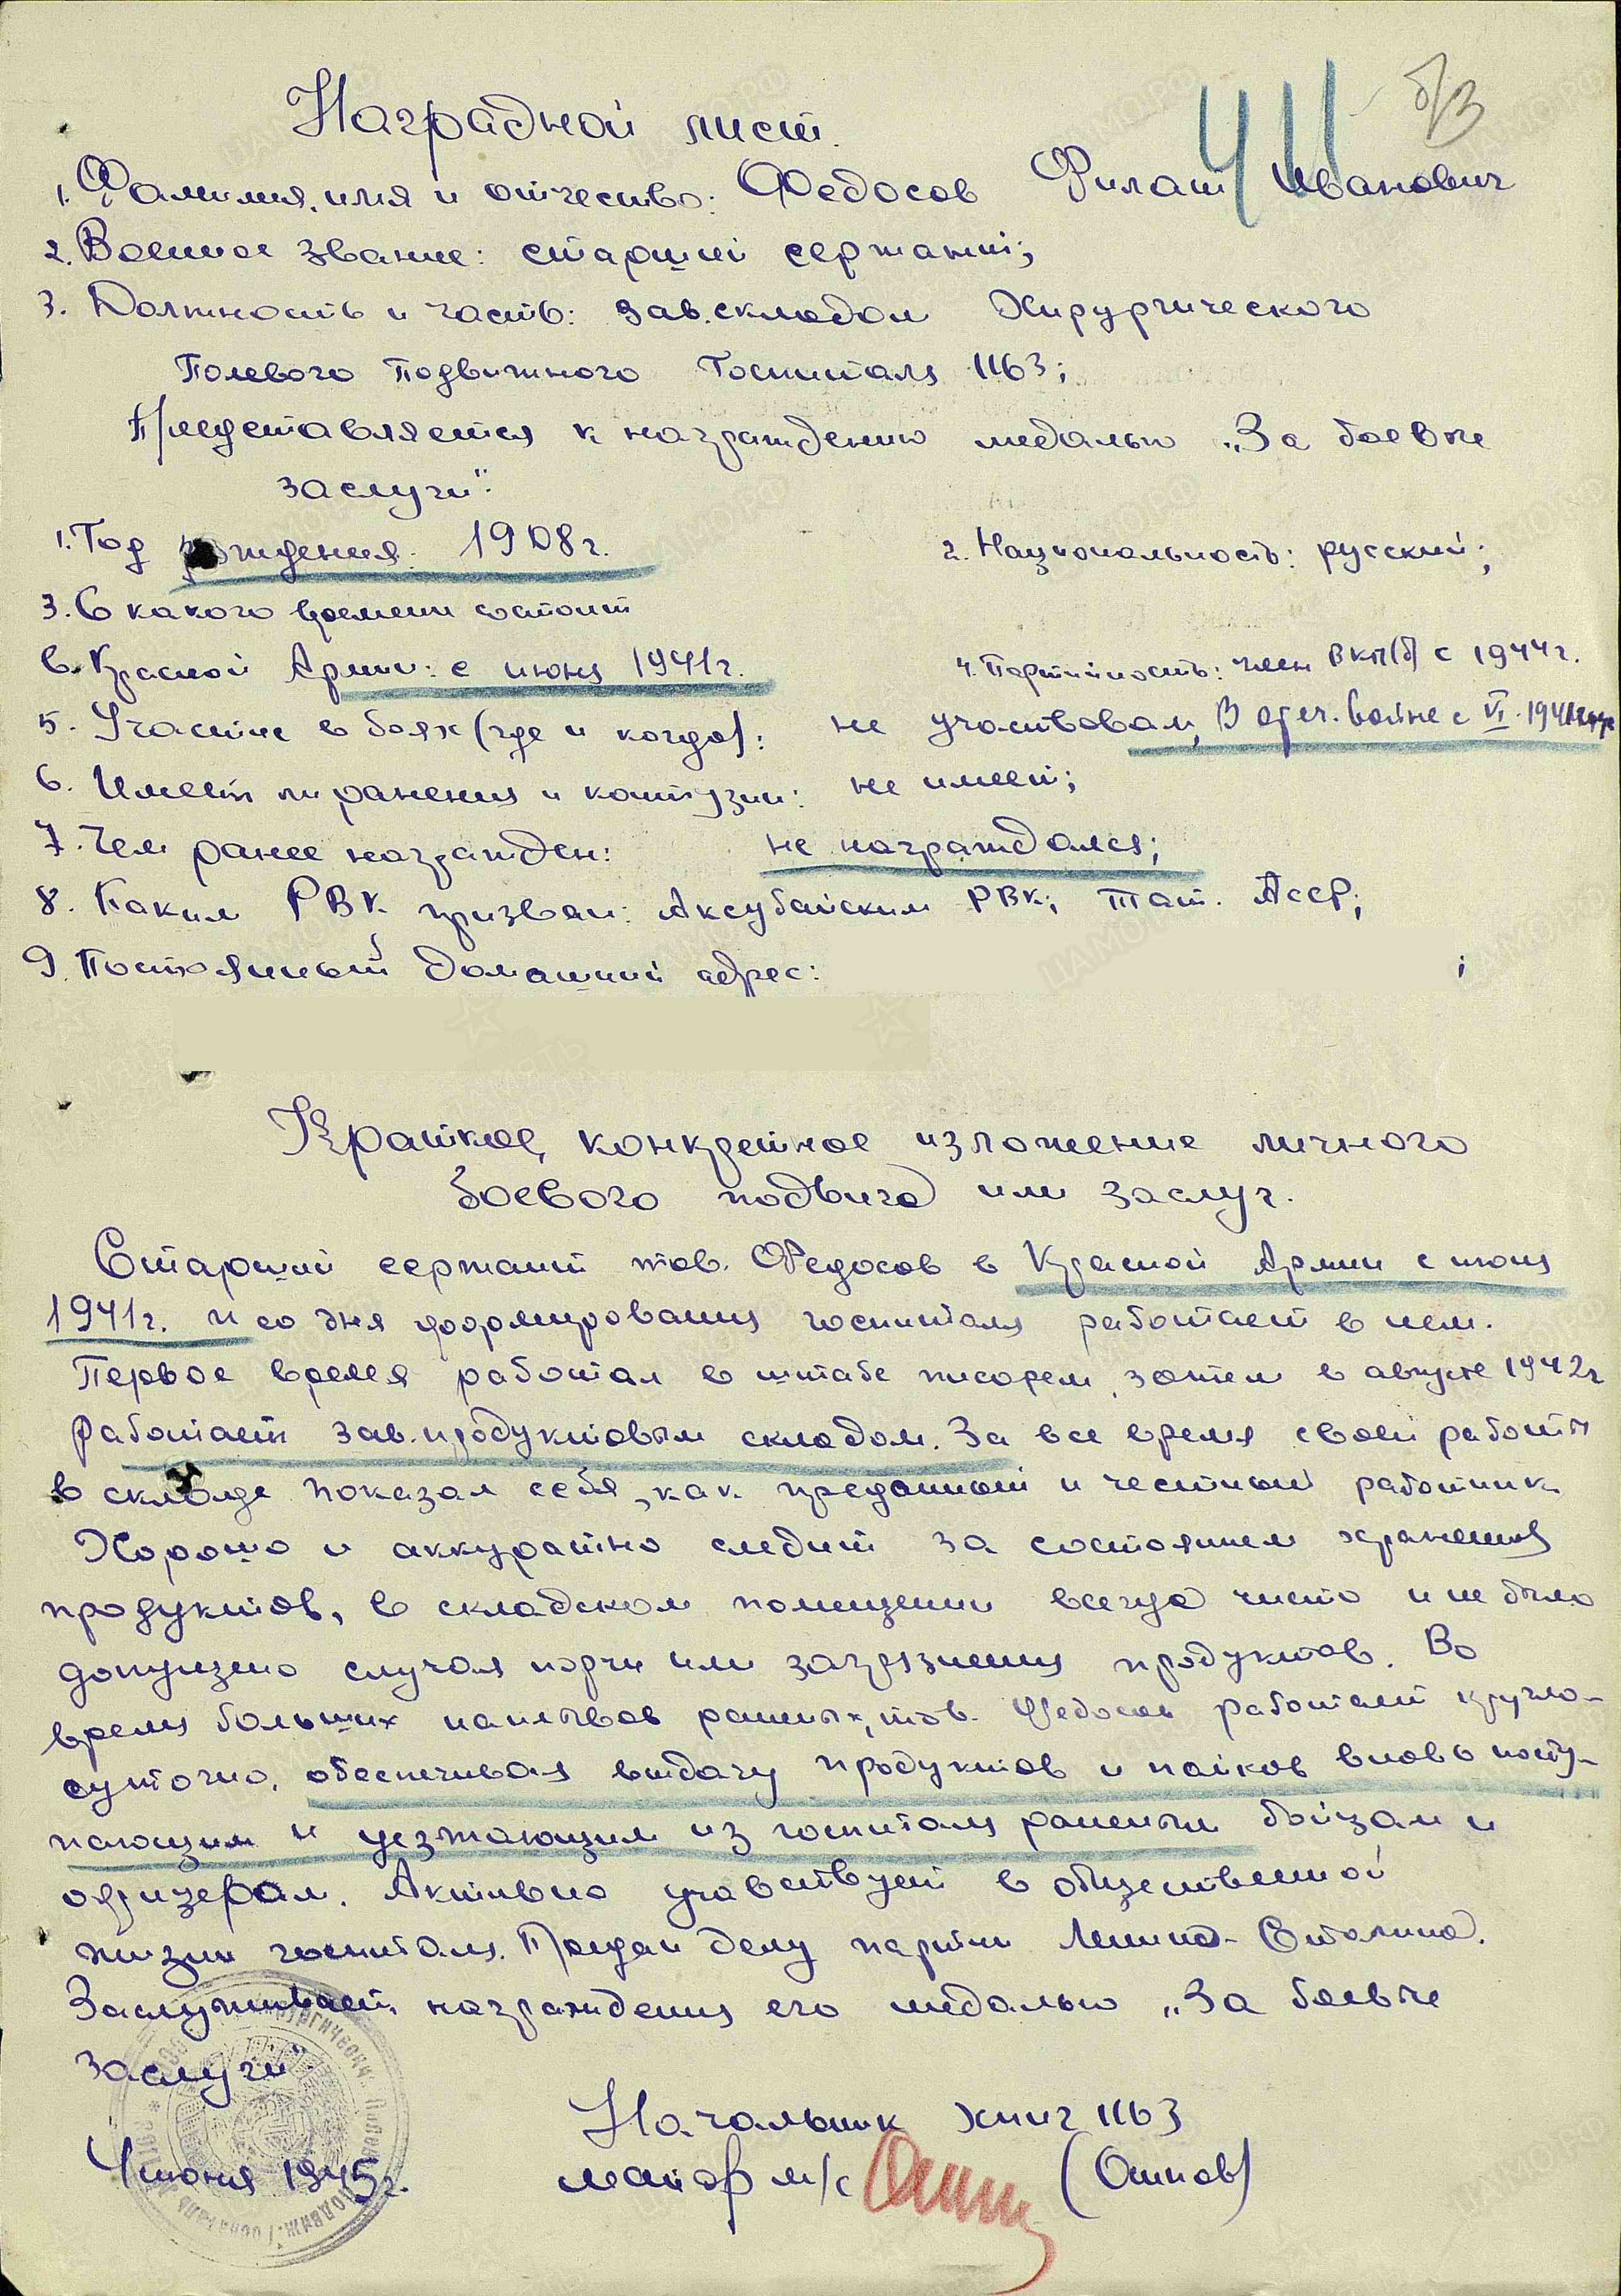 Наградной лист.
44 б/3
1. Фамилия, имя и отчество: Федосов Филат Иванович
2. Военное звание: старший сержант;
3. Должность и часть: зав. складом Хирургического
Полевого Подвижного Госпиталя 1163;
Представляется к награждению медалью „За боевые
заслуги".
1. Год рождения: 1908 г. 2. Национальность: русский;
3. С какого времени состоит
в Красной Армии: с июня 1941 г. 4. Партийность: член ВКП(б) с 1944 г.
5. Участие в боях (где и когда): не участвовал, В отеч. войне с VI. 1941 года
6. Имеет ли ранения и контузии: не имеет;
7. Чем ранее награжден: не награждался;
8. Каким РВК призван: Аксубайским РВК; Тат. АССР;
9. Постоянный домашний адрес: ;
Краткое, конкретное изложение личного
боевого подвига или заслуг.
Старший сержант тов. Федосов в Красной Армии с июня
1941 г. и со дня формирования госпиталя работает в нем.
Первое время работал в штабе писарем, затем в августе 1942 г
работает зав. продуктовым складом. За все время своей работы
в складе показал себя, как преданный и честный работник.
Хорошо и аккуратно следит за состоянием хранения
продуктов, в складском помещении всегда чисто и не было
допущено случая порчи или загрязнения продуктов. Во
время больших наплывов раненых, тов. Федосов работает кругло-
суточно, обеспечивая выдачу продуктов и пайков вновь посту-
пающим и уезжающим из госпиталя раненым бойцам и
офицерам. Активно учавствует в общественной
жизни госпиталя. Предан делу партии Ленина-Сталина.
Заслуживает награждения его медалью „За боевые
заслуги".
Начальник ХППГ 1163
4 июня 1945 г. майор м/с (Осипов)